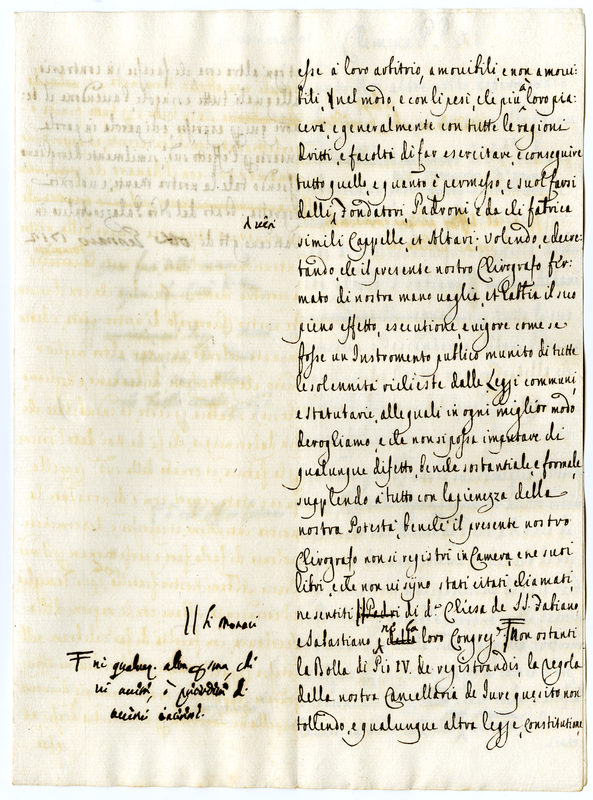 esse à loro arbitrio, amouibili, e non amoui-
bili, nel modo, e con li pesi, che più à loro pia-
cerà, e generalmente con tutte le ragioni
dritti, e facoltà di far esercitare, e conseguire
tutto quello, e quanto è permesso, e suol farsi
dalli Fondatori, Padroni, e da chi fabrica
veri
simili Cappelle, et Altari; volendo, e decre-
tando, che il presente nostro Chirografo fir-
mato di nostra mano vaglia, et habbia il suo
pieno effetto, esecutione, e vigore come se
fosse un Instromento publico munito di tutte
le solennità richieste dalle Leggi communi,
e statutarie, alle quali in ogni miglior modo
deroghiamo, e che non si possa imputare di
qualunque difetto, benche sostantiale, e formale,
supplendo à tutto con la pienezza della
nostra Potestà, benche il presente nostro
Chirografo non si registri in Camera, e ne suoi
libri, e che non vi siano stati citati, chiamati,
ne sentiti Padri di d.ª Chiesa de SS. Fabiano,
// li Monaci
e Sabastiano, ne la loro Congreg.ne Non ostanti
la Bolla di Pio IV. de registrandis, la regola
della nostra Cancellaria de Iure quesito non
tollendo, e qualunque altra legge, Constitutione,
ne qualunq. altra che